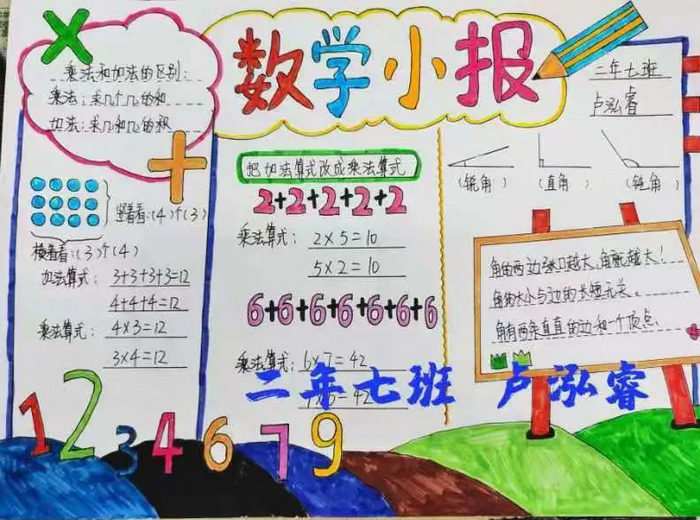 数学小报
乘法和加法的区别:
乘法:求几个几的和
加法:求几和几的积
二年七班
卢泓睿
竖着看:(4)个(3)
横着看:(3)个(4)
加法算式: 3+3+3+3=12
4+4+4=12
乘法算式: 4×3=12
3×4=12
把加法算式改成乘法算式
2+2+2+2+2
乘法算式: 2×5=10
5×2=10
6+6+6+6+6+6+6
乘法算式: 6×7=42
=42
(锐角) (直角) (钝角)
角的两边张口越大,角就越大!
角的大小与边的长短无关。
角有两条直直的边和一个顶点.
二年七班 卢泓睿
1 2 3 4 6 7 9